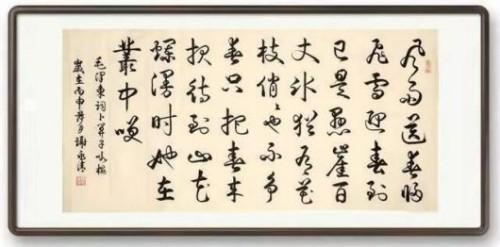 风雨送春归
飛雪迎春到
已是悬崖百
丈冰犹有花
枝俏也不争
春只把春来
报待到山花
爛漫时她在
叢中咲
毛泽東词卜算子咏梅
歲在丙申